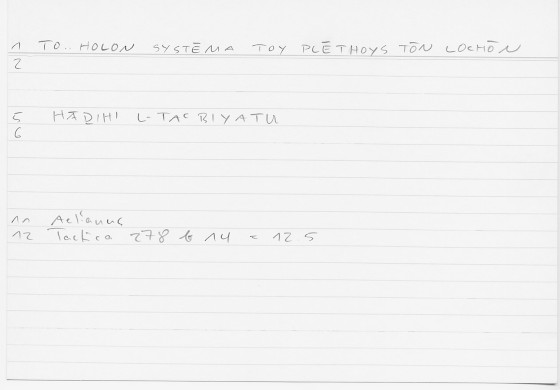 1 TO.. HOLON SYSTĒMA TOY PLĒTHOYS TŌN LOCHŌN
2
5 HĀḎIHI L-TAʿBIYATU
6
11 Aelianus
12 Tactica 278 b 14 = 12 5